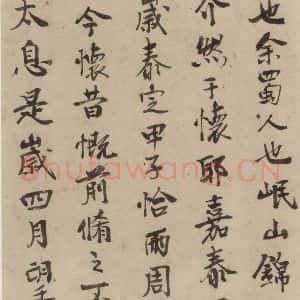 也余蜀人也岷山錦
介然于懷耶嘉泰
歲泰定甲子恰兩周
今懷昔慨前脩之不
太息是歲四月朔
Shufawang.CN